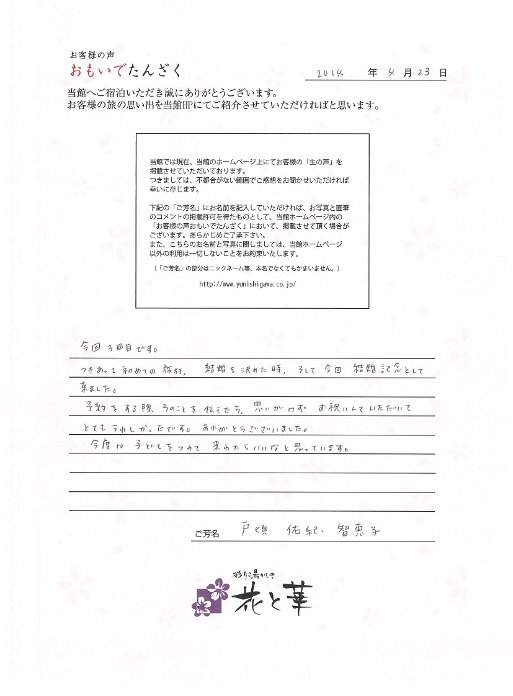 お客様の声
おもいでたんざく
2014 年 4 月 23 日
当館へご宿泊いただき誠にありがとうございます。
お客様の旅の思い出を当館HPにてご紹介させていただければと思います。
当館では現在、当館のホームページ上にてお客様の「生の声」を
掲載させていただいております。
つきましては、不都合がない範囲でご感想をお聞かせいただければ
幸いに存じます。
下記の「ご芳名」にお名前を記入していただければ、お写真と直筆
のコメントの掲載許可を得たものとして、当館ホームページ内の
「お客様の声おもいでたんざく」において、掲載させて頂く場合が
ございます。あらかじめご了承下さい。
また、こちらのお名前と写真に関しましては、当館ホームページ
以外の利用は一切しないことをお約束いたします。
(「ご芳名」の部分はニックネーム等、本名でなくてもかまいません。)
http://www.yunishigawa.co.jp/
今回3回目です。
つきあって初めての旅行、結婚を決めた時、そして今回結婚記念として
来ました。
予約をする際そのことを伝えたら、思いがけずお祝いしていただいて
とてもうれしかったです。ありがとうございました。
今度は子どもをつれて来れたらいいなと思っています。
ご芳名 戸頃 佑紀 智恵子
彩り湯かしき
花と華